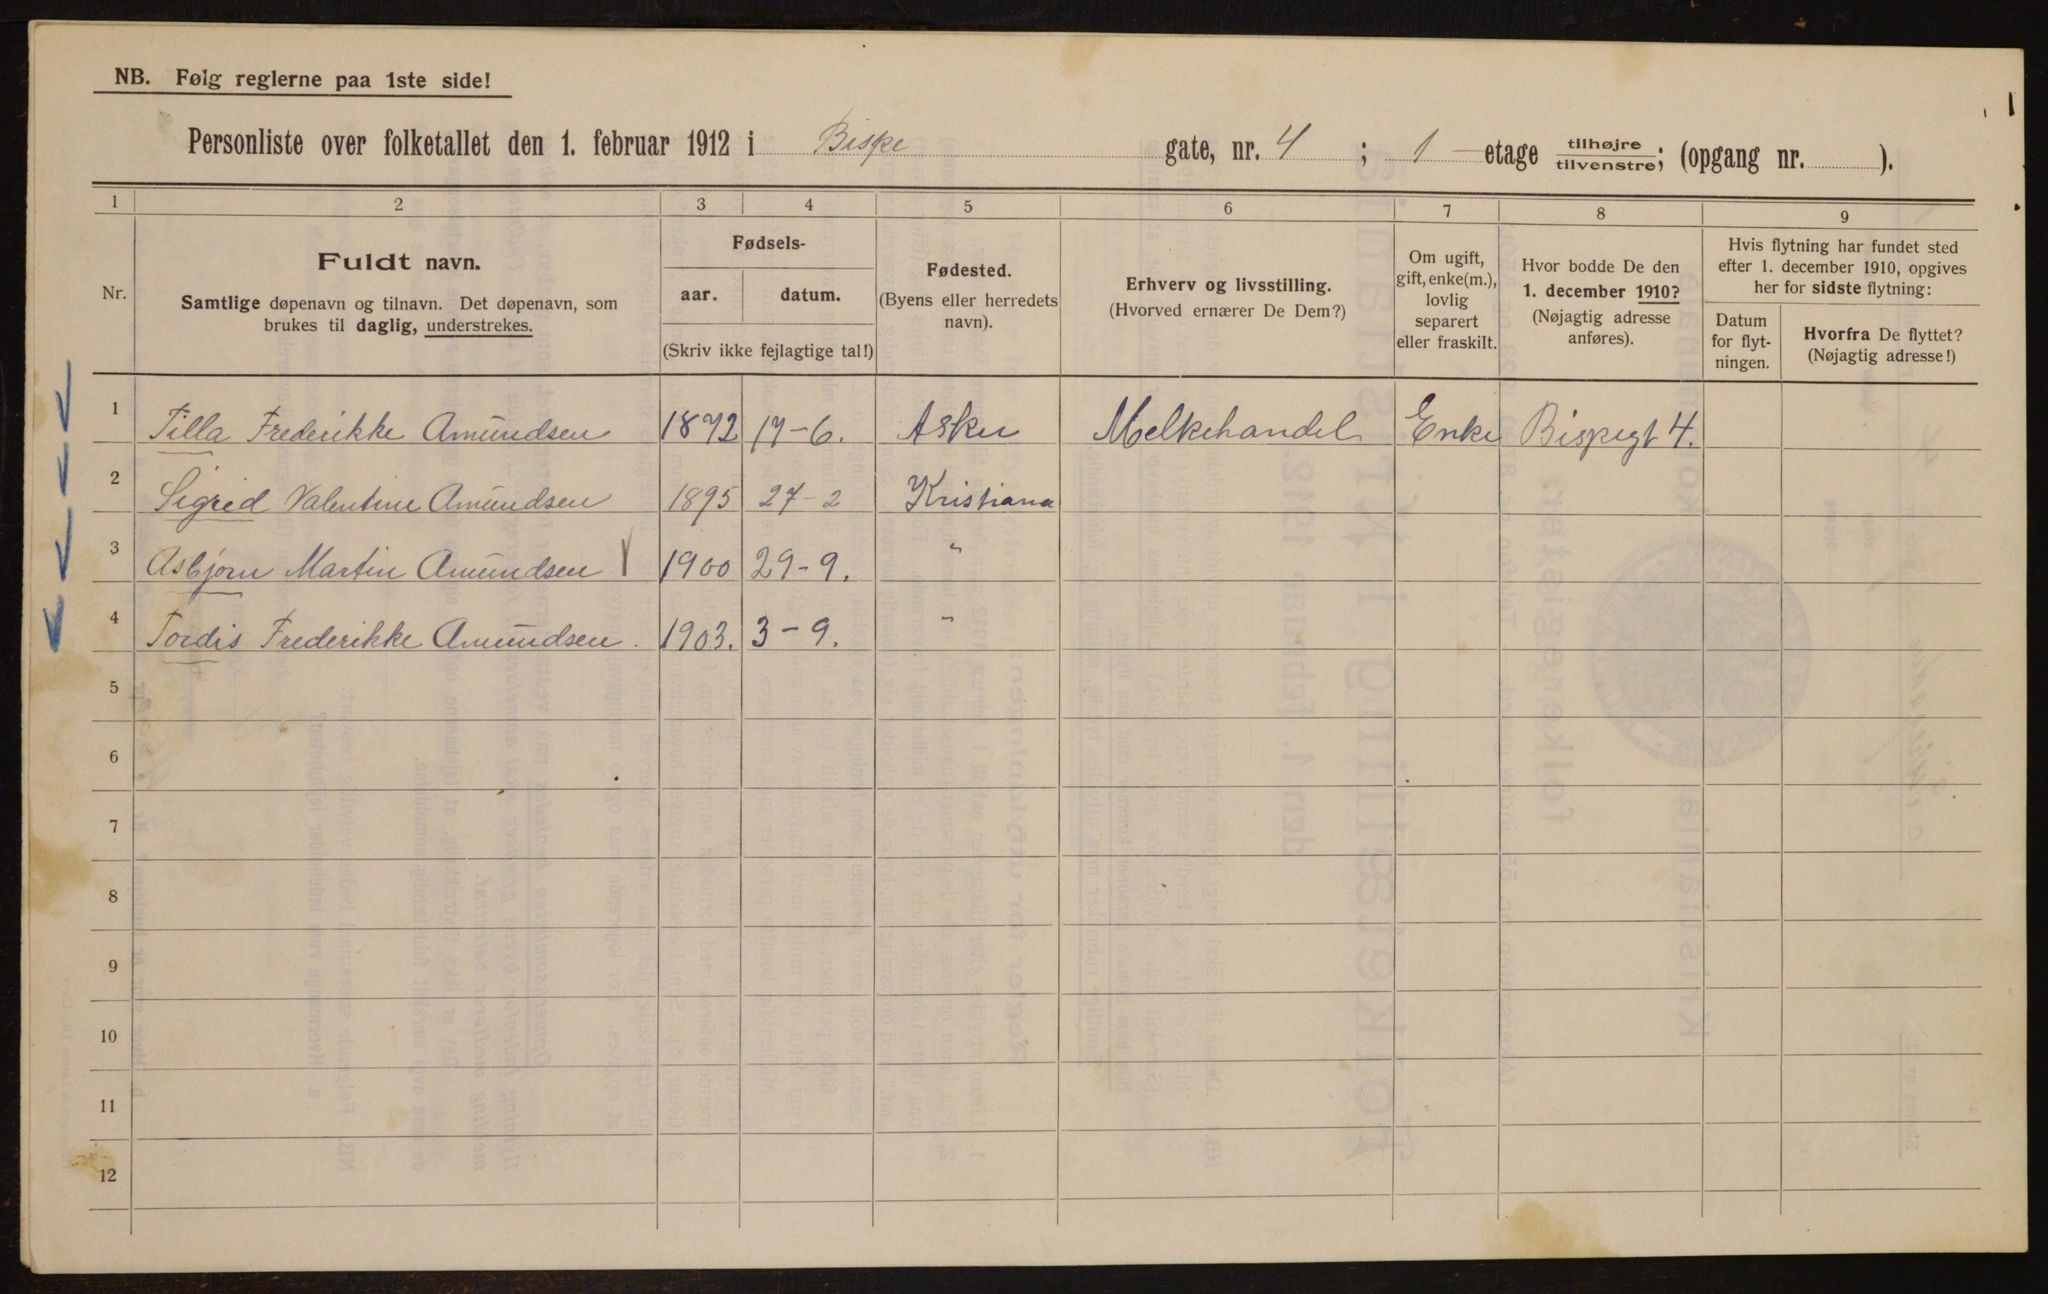 NB. Følg reglerne paa 1ste side!
Personliste over folketallet den 1. februar 1912 i Bispe gate, nr. 4 ; 1 etage tilhøjre/tilvenstre; (opgang nr. ).
1 2 3 4 5 6 7 8 9
Nr.
Fuldt navn.
Samtlige døpenavn og tilnavn. Det døpenavn, som
brukes til daglig, understrekes.
Fødsels-
aar. datum.
(Skriv ikke fejlagtige tal!)
Fødested.
(Byens eller herredets
navn).
Erhverv og livsstilling.
(Hvorved ernærer De Dem?)
Om ugift,
gift, enke(m.),
lovlig
separert
eller fraskilt.
Hvor bodde De den
1. december 1910?
(Nøjagtig adresse
anføres).
Hvis flytning har fundet sted
efter 1. december 1910, opgives
her for sidste flytning:
Datum
for flyt-
ningen.
Hvorfra De flyttet?
(Nøjagtig adresse!)
1 Tilla Frederikke Amundsen 1872 17-6. Asker Melkehandel Enke Bispegt 4.
2 Sigrid Valentine Amundsen 1895 27-2 Kristiana
3 Asbjørn Martin Amundsen 1900 29-9. "
4 Tordis Frederikke Amundsen. 1903. 3-9. "
5
6
7
8
9
10
11
12